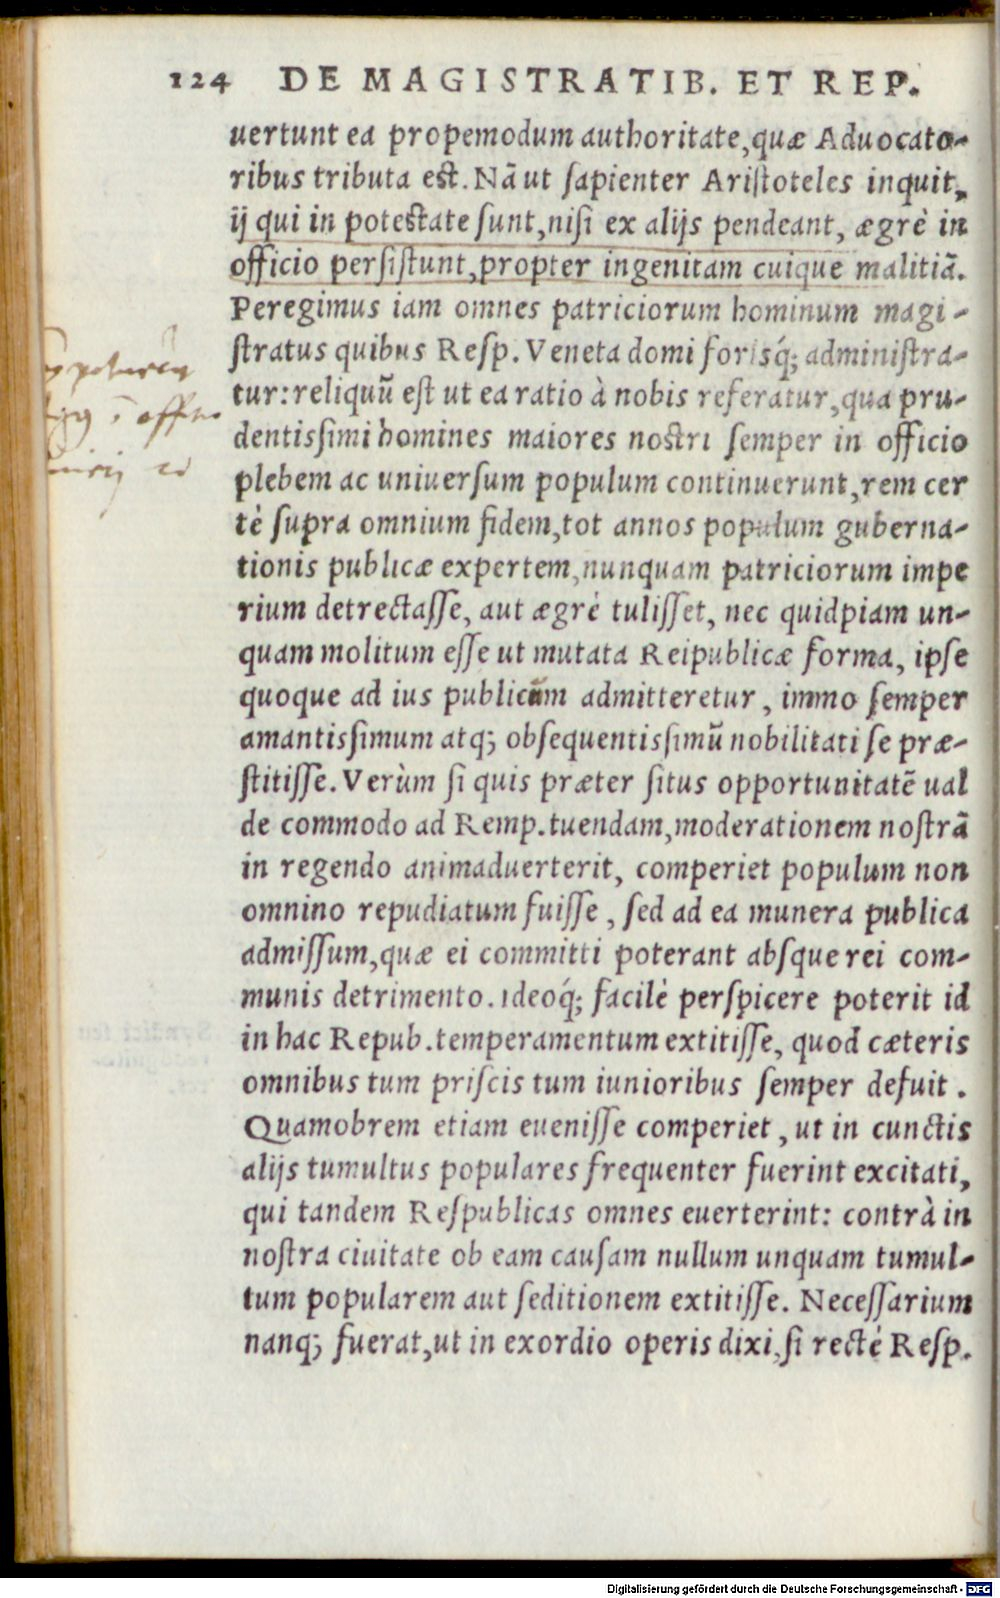 124 DE MAGISTRATIB. ET REP.
uertunt ea propemodum authoritate, quæ Aduocato-
ribus tributa est. Nã ut sapienter Aristoteles inquit,
ij qui in potestate sunt, nisi ex alijs pendeant, ægrè in
officio persistunt, propter ingenitam cuique malitiã.
Peregimus iam omnes patriciorum hominum magi-
stratus quibus Resp. Veneta domi forisq́; administra-
tur: reliquũ est ut ea ratio à nobis referatur, qua pru-
dentissimi homines maiores nostri semper in officio
plebem ac uniuersum populum continuerunt, rem cer
tè supra omnium fidem, tot annos populum guberna-
tionis publicæ expertem, nunquam patriciorum impe
rium detrectasse, aut ægrè tulisset, nec quidpiam un-
quam molitum esse ut mutata Reipublicæ forma, ipse
quoque ad ius publicum admitteretur, immo semper
amantissimum atq; obsequentissimũ nobilitati se præ-
stitisse. Verùm si quis præter situs opportunitatẽ ual
de commodo ad Remp. tuendam, moderationem nostrã
in regendo animaduerterit, comperiet populum non
omnino repudiatum fuisse, sed ad ea munera publica
admissum, quæ ei committi poterant absque rei com-
munis detrimento. Ideoq́; facilè perspicere poterit id
in hac Repub. temperamentum extitisse, quod cæteris
omnibus tum priscis tum iunioribus semper defuit.
Quamobrem etiam euenisse comperiet, ut in cunctis
alijs tumultus populares frequenter fuerint excitati,
qui tandem Respublicas omnes euerterint: contrà in
nostra ciuitate ob eam causam nullum unquam tumul-
tum popularem aut seditionem extitisse. Necessarium
nanq; fuerat, ut in exordio operis dixi, si rectè Resp.
Digitalisierung gefördert durch die Deutsche Forschungsgemeinschaft - DFG